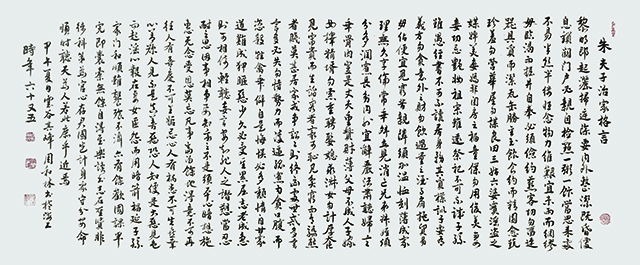 朱夫子治家格言
黎明即起灑掃庭除要內外整潔既昏便
息關鎖門戶必親自檢點一粥一飯當思來處
不易半絲半縷恒念物力維艱宜未雨而綢繆
毋臨渴而掘井自奉必須儉約宴客切勿留連
器具質而潔瓦缶勝金玉飲食約而精園蔬愈
珍羞勿營華屋勿謀良田三姑六婆實淫盜之
媒婢美妾嬌非閨房之福童僕勿用俊美妻
妾切忌艷妝祖宗雖遠祭祀不可不誠子孫
雖愚經書不可不讀居身務期質樸教子要有
義方勿貪意外之財勿飲過量之酒與肩挑貿易
勿佔便宜見貧苦親鄰須加溫恤刻薄成家
理無久享倫常乖舛立見消亡兄弟叔侄須
分多潤寡長幼內外宜辭嚴法肅聽婦言
乖骨肉豈是丈夫重貲財薄父母不成人子嫁
女擇佳婿勿索重聘娶媳求淑女勿計厚奩
見富貴而生諂容者最可恥見貧窮而作驕態
者賤莫甚居家戒爭訟訟則終凶處世戒多
言言多必失勿恃勢力而凌逼孤寡毋貪口腹而
恣殺牲禽乖僻自是悔誤必多頹惰自甘家
道難成狎暱惡少久必受其累屈志老成急
則可相依輕聽發言安知非人之譖訴當忍
耐三思因事相爭焉知非我之不是須平心暗想施
惠無念受恩莫忘凡事當留餘地得意不宜再
往人有喜慶不可生妒忌心人有禍患不可生喜幸
心善欲人見不是真善惡恐人知便是大惡見色
而起淫心報在妻女匿怨而用暗箭禍延子孫
家門和順雖饔飧不繼亦有餘歡國課早
完即囊橐無餘自得至樂讀書志在聖賢非
徒科第為官心存君國豈計身家守分安命
順時聽天為人若此庶乎近焉
甲午夏日雲谷其峰周和林書於海上
時年六十又五